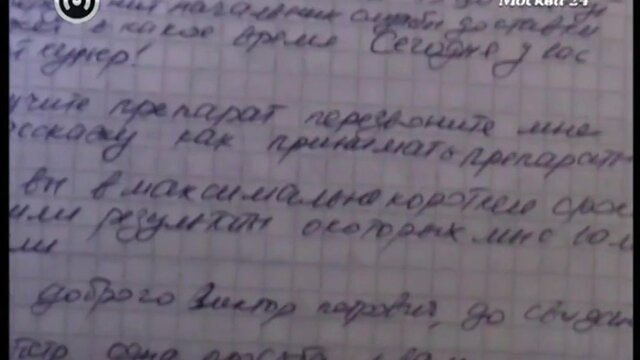 Москва 24
начальник службы доставки
в какое время Сегодня у вас
й супер!
учите препарат перезвоните мне
сскажу как принимать препарат
вы в максимально короткие срок
или результат о которых мне го
ли
доброго Виктор петрович, до свидан
одна просьба